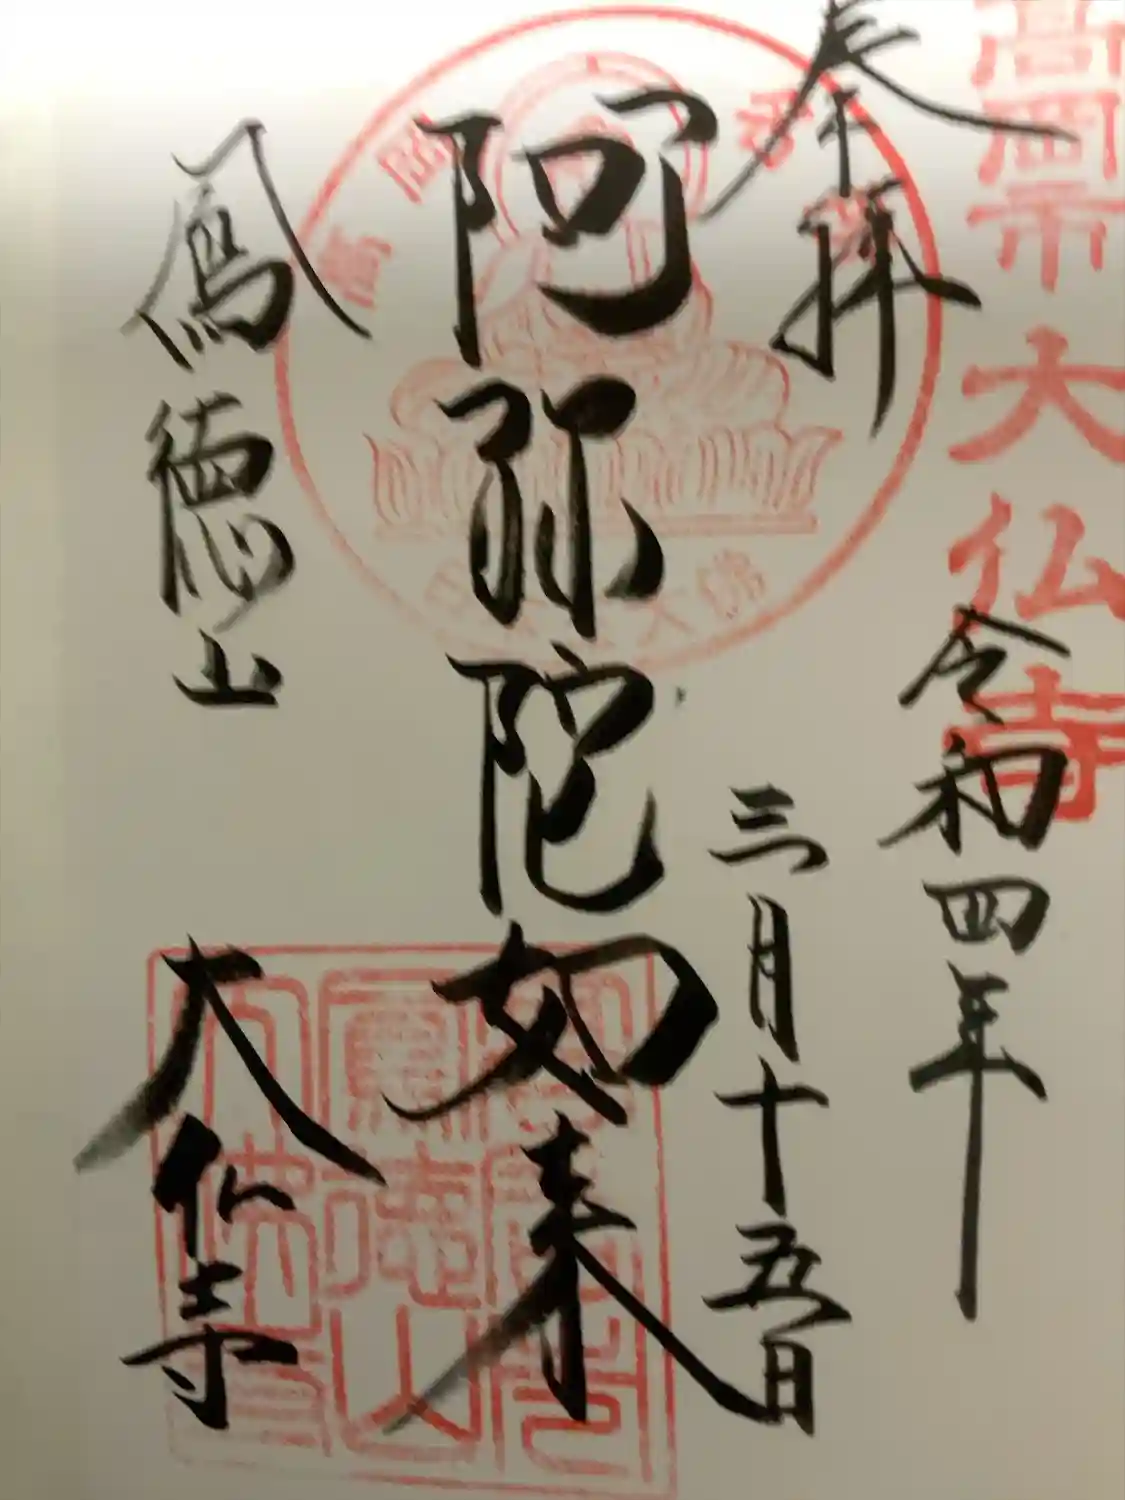 高岡市大仏寺
奉拝
令和四年
三月十五日
阿弥陀如来
鳳徳山
大仏寺